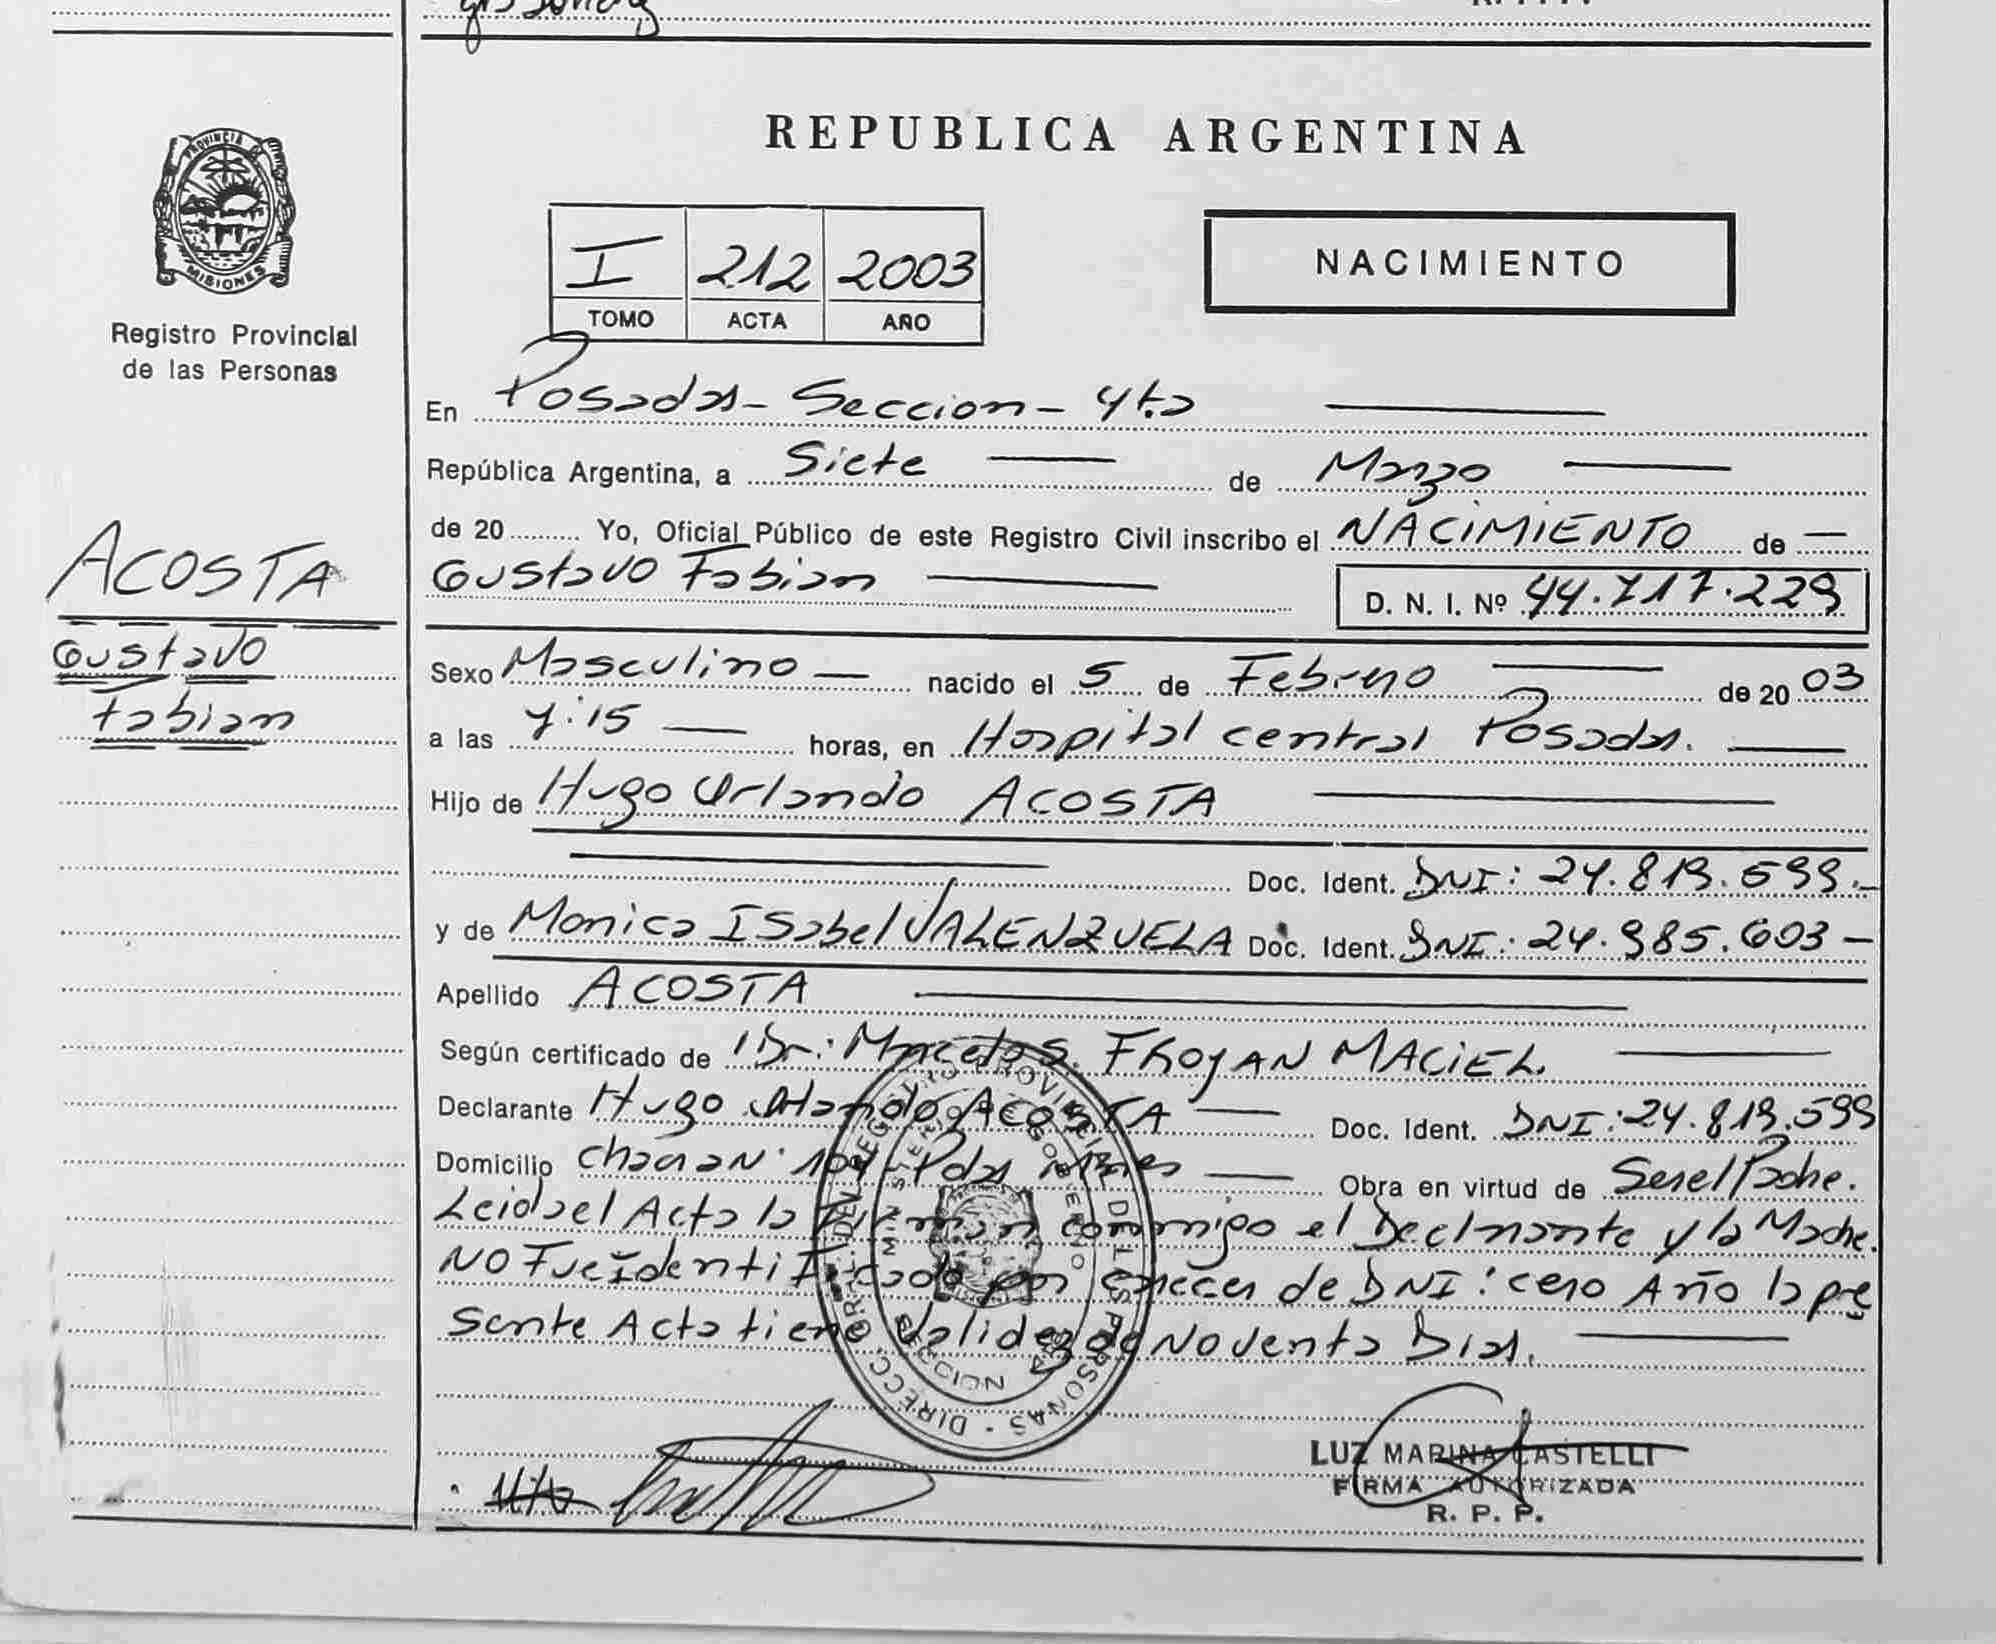 PROVINCIA DE
MISIONES
Registro Provincial
de las Personas
ACOSTA
Gustavo
Fabian
REPUBLICA ARGENTINA
I 212 2003
TOMO ACTA AÑO
NACIMIENTO
En Posadas - Seccion - 4ta
República Argentina, a Siete de Marzo
de 20 Yo, Oficial Público de este Registro Civil inscribo el NACIMIENTO de
Gustavo Fabian D. N. I. Nº 44.717.229
Sexo Masculino nacido el 5 de Febrero de 20 03
a las horas, en Hospital central Posadas.
Hijo de Hugo Orlando ACOSTA
Doc. Ident. DNI: 24.819.599.-
y de Monica Isabel VALENZUELA Doc. Ident. DNI: 24.985.603 -
Apellido ACOSTA
Según certificado de Dr: Marcelo S. FROYAN MACIEL.
Declarante Hugo Orlando ACOSTA Doc. Ident. DNI: 24.819.599
Domicilio Pdas Mnes Obra en virtud de Ser el Padre.
Leida el Acta la Firman conmigo el Declarante y la Madre.
NO Fue identificado por carecer de DNI: cero Año la pre
sente Acta tiene Validez de Noventa Dias.
DIRECC. GRAL. DEL REGISTRO PROVINCIAL DE LAS PERSONAS -
MINISTERIO DE GOBIERNO
LUZ MARINA CASTELLI
FIRMA AUTORIZADA
R. P. P.